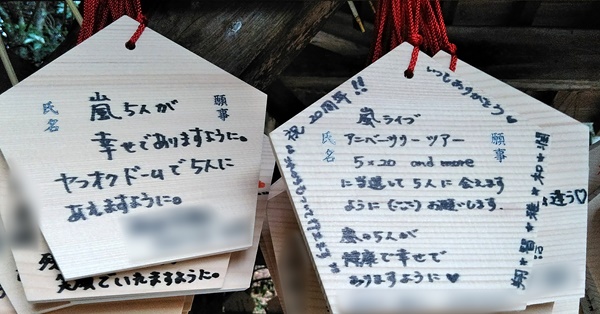 願事
氏名
嵐5人が
幸せでありますように。
ヤフオクドームで5人に
あえますように。
笑顔でいれますように。
いつもありがとう
祝20周年!!
願事
氏名
嵐ライブ
アニバーサリーツアー
5×20 and more
に当選して5人に会えます
ように(ごご)お願いします。
嵐の5人が
健康で幸せで
ありますように♥
翔*智*雅*和*潤